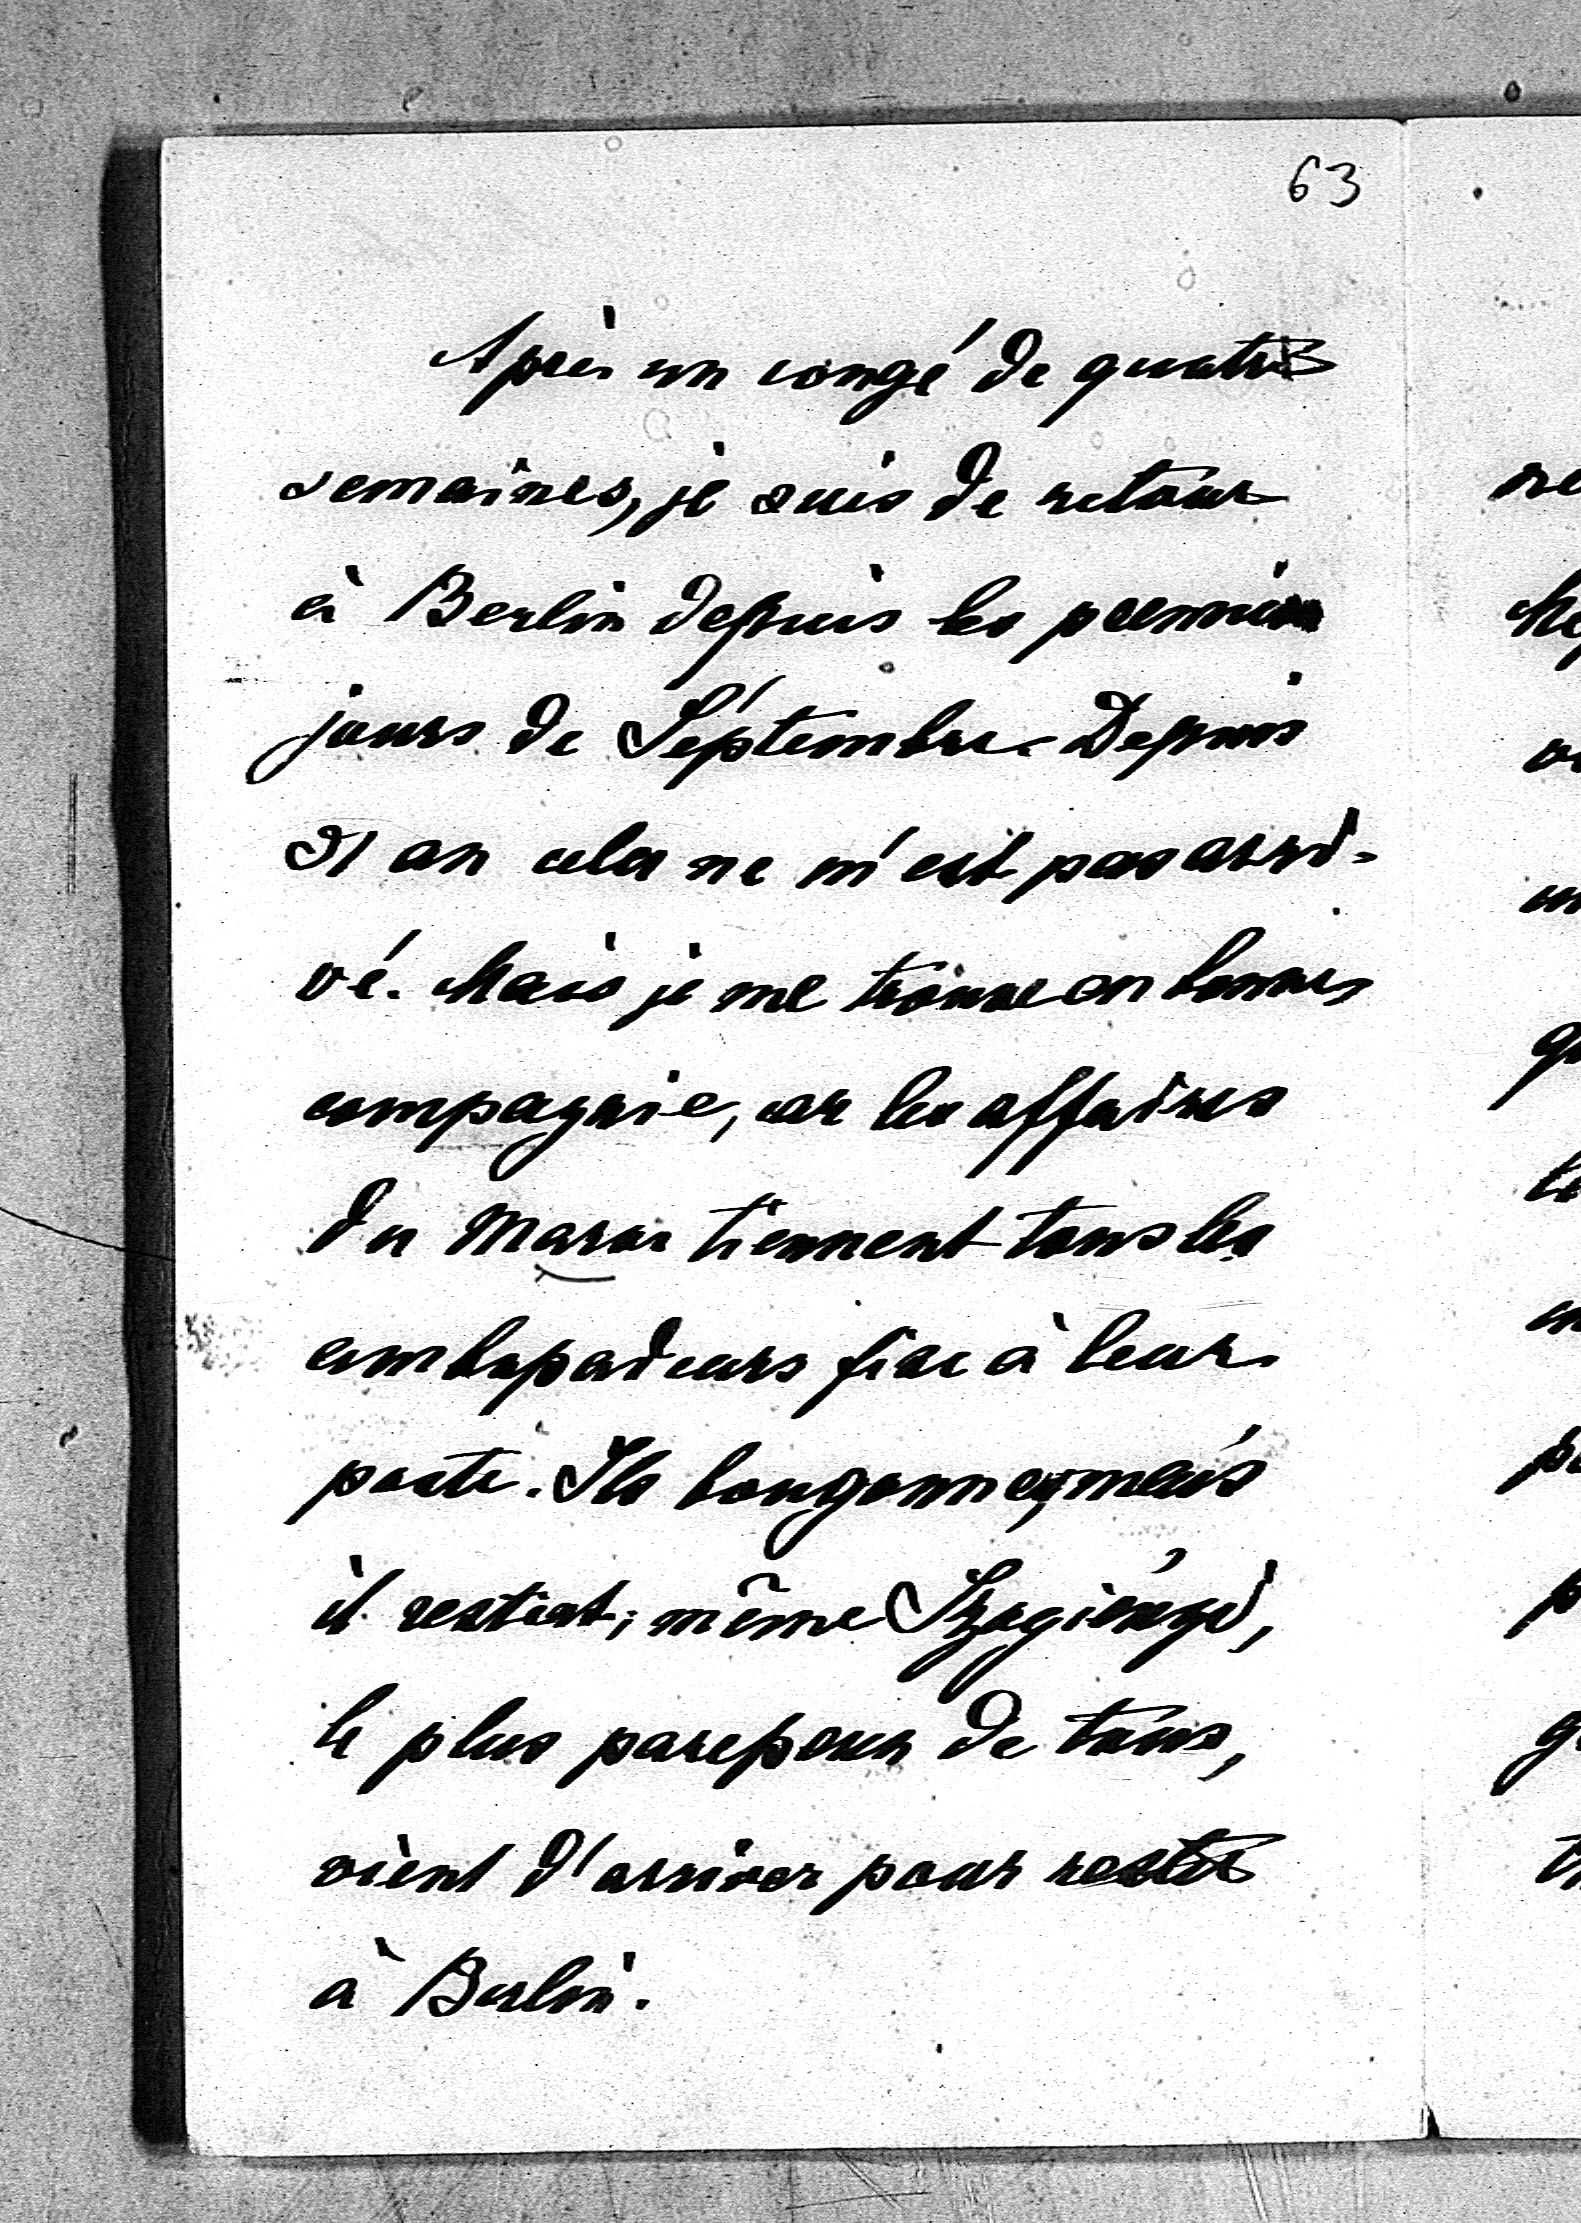 63
Après un congé de quatre
semaines, je suis de retour
à Berlin depuis les premiers
jours de Séptembre. Depuis
21 an cela ne m'est pas arri-
vé. Mais je me trouve en bonne
compagnie, car les affaires
du Maroc tiennent tous les
ambassadeurs fixe à leur
poste. Ils bougonnent, mais
il restent; même Szögiényi,
le plus paresseux de tous,
vient d'arriver pour rester
à Berlin.